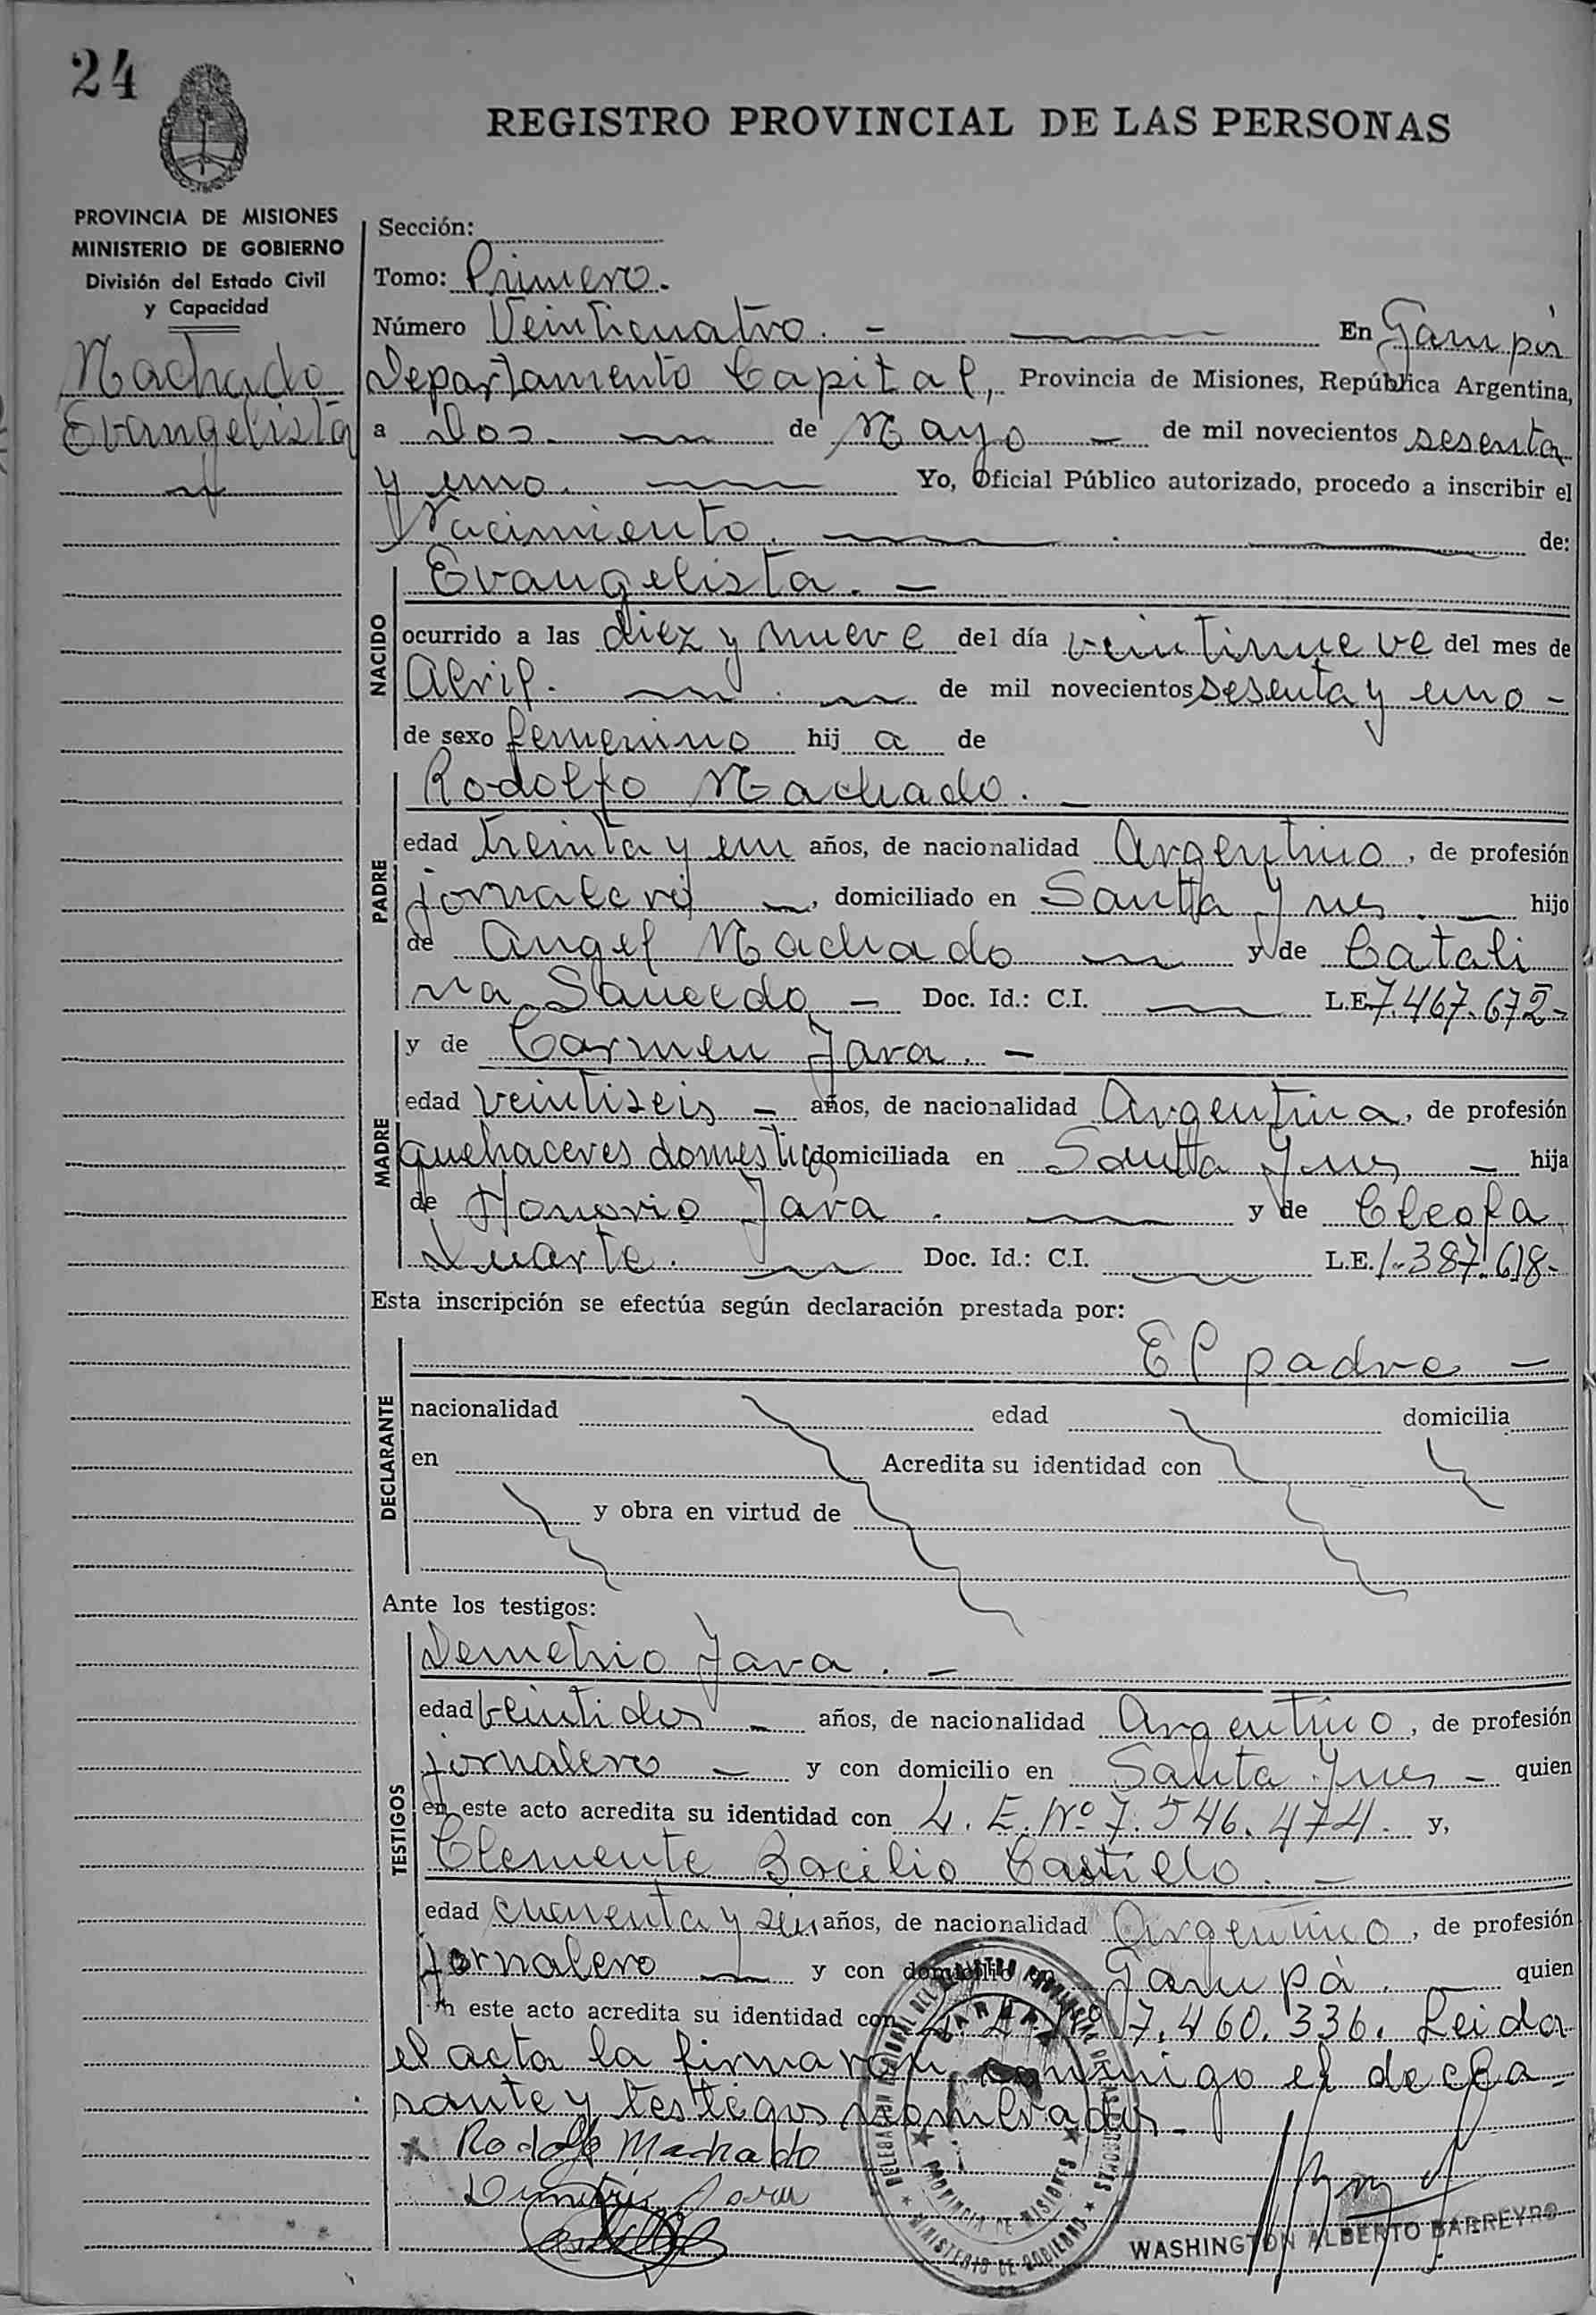 24
REGISTRO PROVINCIAL DE LAS PERSONAS
PROVINCIA DE MISIONES
MINISTERIO DE GOBIERNO
División del Estado Civil
y Capacidad
Machado
Evangelista
Sección:
Tomo: Primero.
Número Veinticuatro. - En Garupá
Departamento Capital, Provincia de Misiones, República Argentina,
a Dos. de Mayo de mil novecientos sesenta
y uno. Yo, Oficial Público autorizado, procedo a inscribir el
Nacimiento. de:
NACIDO
Evangelista. -
ocurrido a las diez y nueve del día veintinueve del mes de
Abril. de mil novecientos sesenta y uno -
de sexo femenino hij a de
PADRE
Rodolfo Machado. -
edad treinta y un años, de nacionalidad Argentino, de profesión
jornalero, domiciliado en Santa Ynes. hijo
de Angel Machado y de Catali
na Saucedo - Doc. Id.: C.I. L.E. 7.467.672-
MADRE
y de Carmen Jara. -
edad veintiseis - años, de nacionalidad Argentina, de profesión
quehaceres domesticos domiciliada en Santa Ynes - hija
de Honorio Jara. y de Cleofa
Duarte. Doc. Id.: C.I. L.E. 1.387.618-
Esta inscripción se efectúa según declaración prestada por:
DECLARANTE
El padre -
nacionalidad edad domicilia
en Acredita su identidad con
y obra en virtud de
Ante los testigos:
TESTIGOS
Demetrio Jara. -
edad veintidos - años, de nacionalidad Argentino, de profesión
jornalero - y con domicilio en Santa Ynes - quien
en este acto acredita su identidad con L. E. Nº 7.546.474. y,
Clemente Bacilio Castillo. -
edad cuarenta y seis años, de nacionalidad Argentino, de profesión
jornalero y con domicilio en Garupá. quien
en este acto acredita su identidad con L. E. Nº 7.460.336. Leida
el acta la firmaron conmigo el decla-
rante y testigos nombrados.-
Rodolfo Machado
Demetrio Jara
GARUPA
PROVINCIA DE MISIONES
MINISTERIO DE GOBIERNO
WASHINGTON ALBERTO BARREYRO